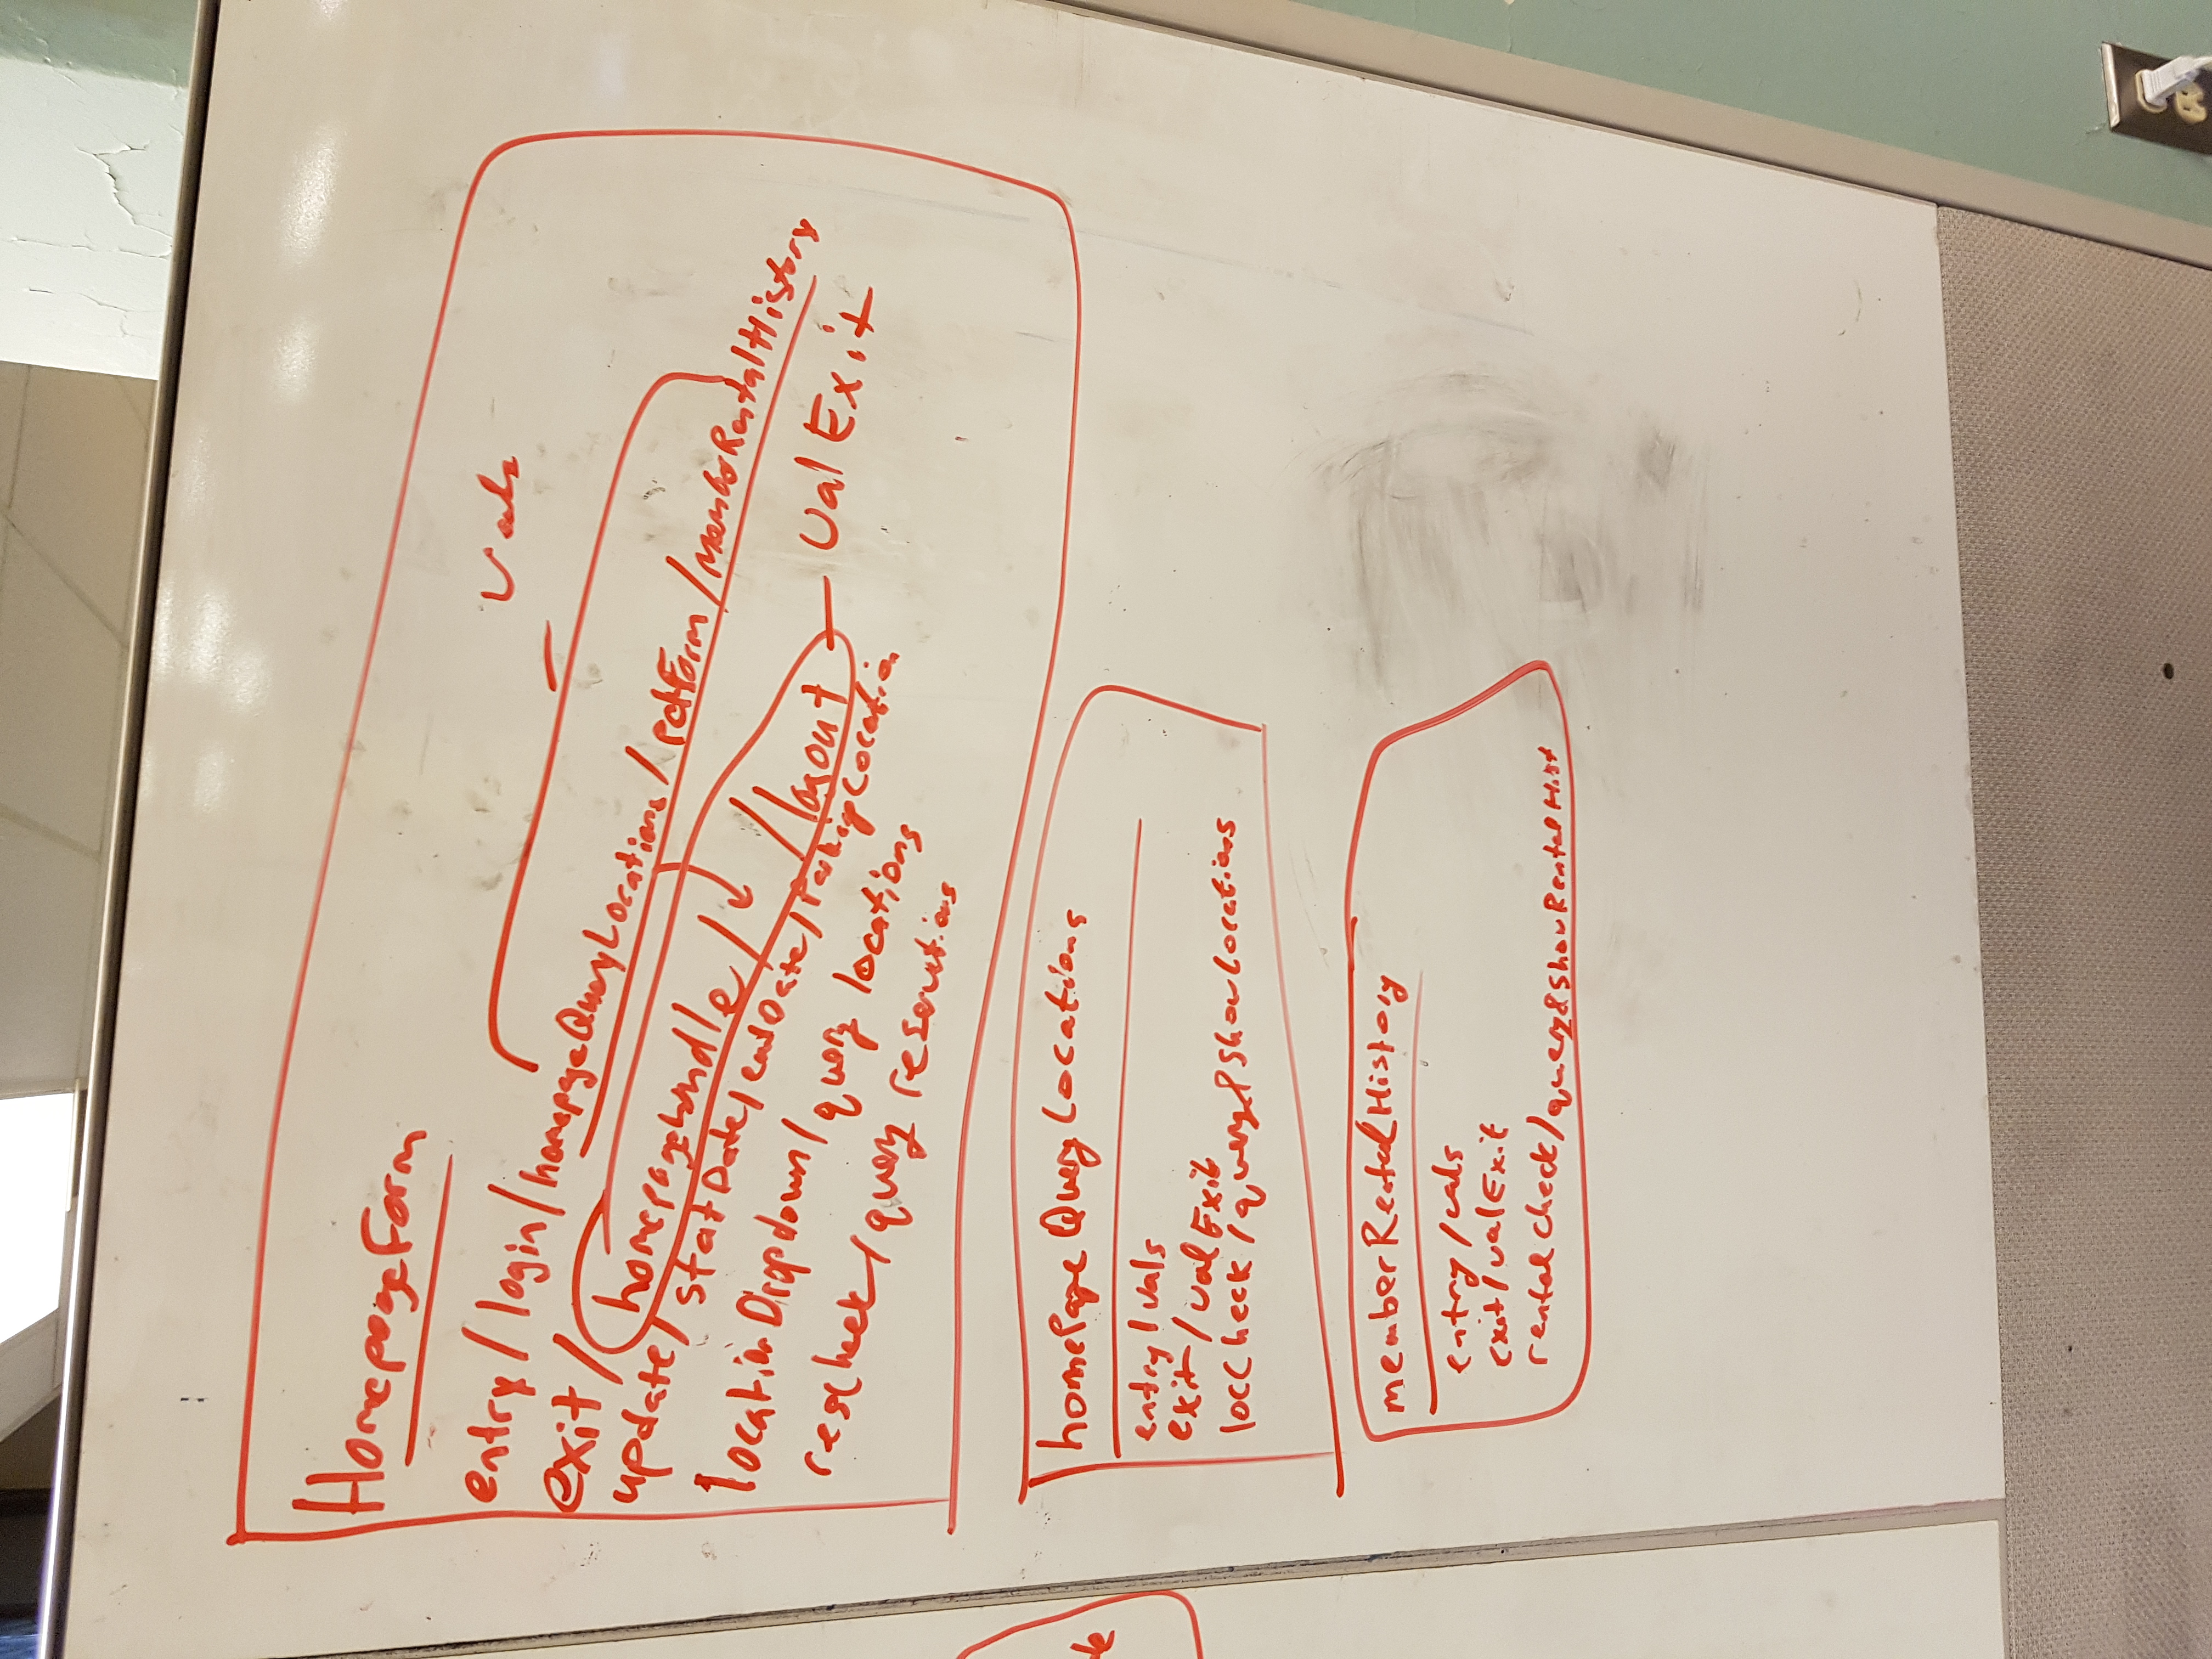 HomepageForm
vals
entry/login/homepageQueryLocations/petForm/MemberRentalHistory
exit/homepageHandle/ /logout
valExit
update/statDate/endDate/ParkingLocation
locationDropdown/query locations
rescheck/query reservations
homePage Query Locations
entry/vals
exit/valExit
locCheck/query&ShowLocations
memberRentalHistory
entry/vals
exit/valExit
rentalcheck/query&ShowRentalHist